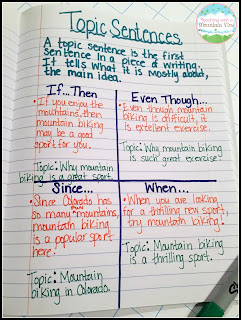 Teaching with a
Mountain View
Topic Sentences
A topic sentence is the first
sentence in a piece of writing.
It tells what it is mostly about,
the main idea.
If...Then
• If you enjoy the
mountains, then
mountain biking
may be a good
sport for you.
Topic: Why mountain
biking is a great sport.
Even Though...
• Even though mountain
biking is difficult, it
is excellent exercise.
Topic: Why mountain biking
is such great exercise!
Since...
• Since Colorado has
so many fun mountains,
mountain biking
is a popular sport
here!
Topic: Mountain
biking in Colorado.
When...
• When you are looking
for a thrilling new sport,
try mountain biking!
Topic: Mountain biking
is a thrilling sport.